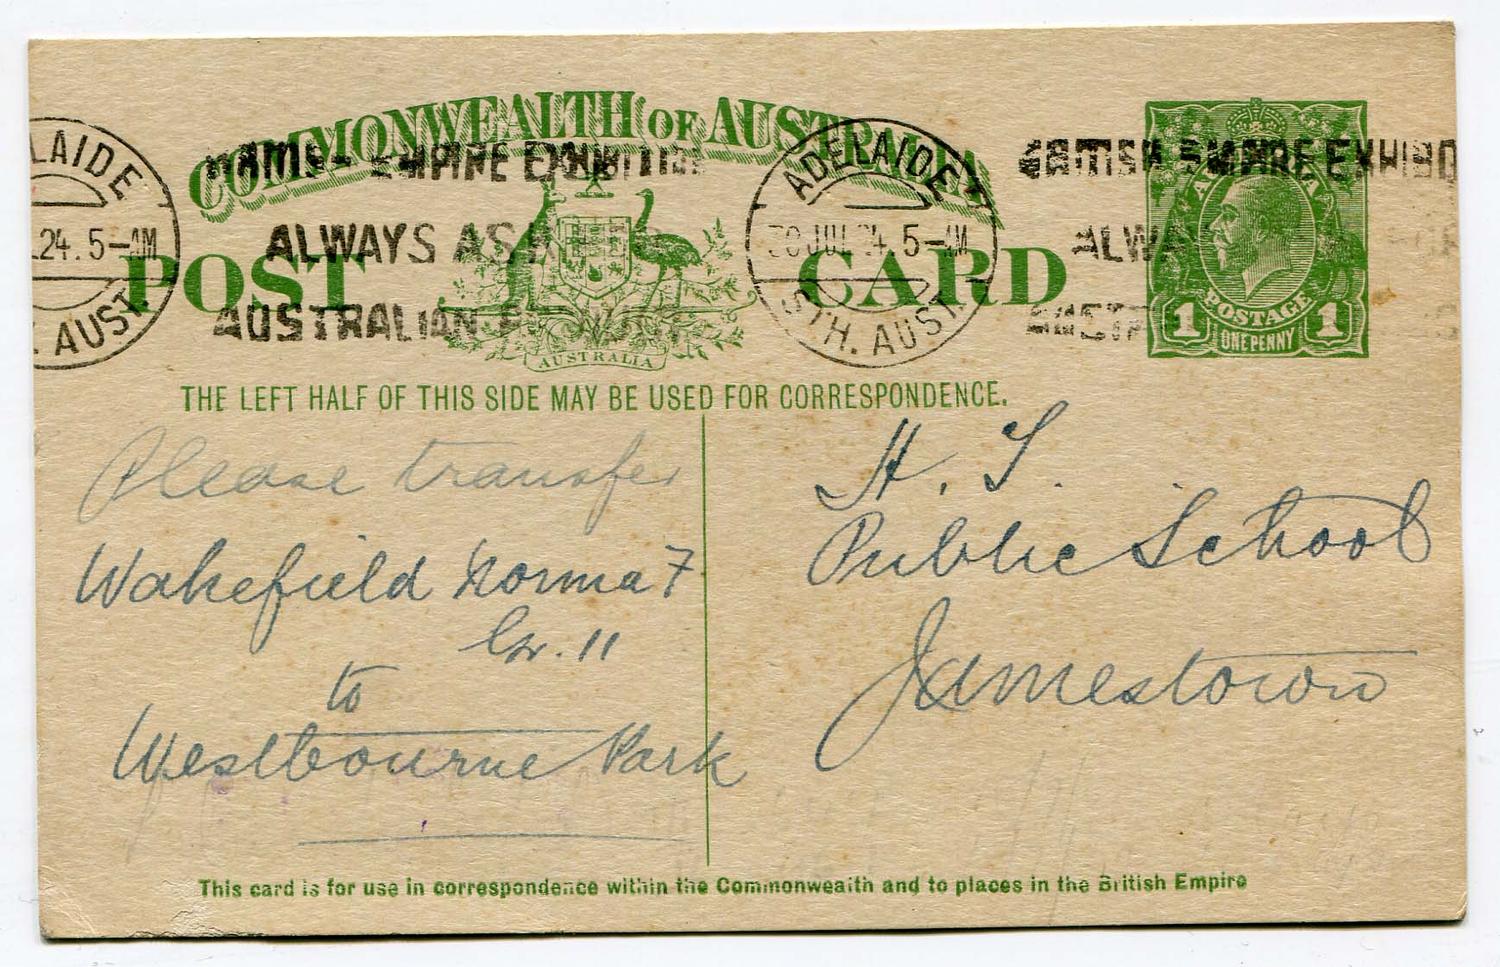 COMMONWEALTH OF AUSTRALIA
POST CARD
ADELAIDE
30 JUL 24. 5-AM
STH. AUST.
LAIDE
L.24. 5-AM
. AUST.
BRITISH EMPIRE EXHIBITION
ALWAYS ASK
AUSTRALIAN
BRITISH EMPIRE EXHIB
ALWA
AUSTRA
AUSTRALIA
POSTAGE
1 ONE PENNY 1
THE LEFT HALF OF THIS SIDE MAY BE USED FOR CORRESPONDENCE.
Please transfer
Wakefield Norma 7
Gr. 11
to
Westbourne Park
H. T.
Public School
Jamestown
This card is for use in correspondence within the Commonwealth and to places in the British Empire